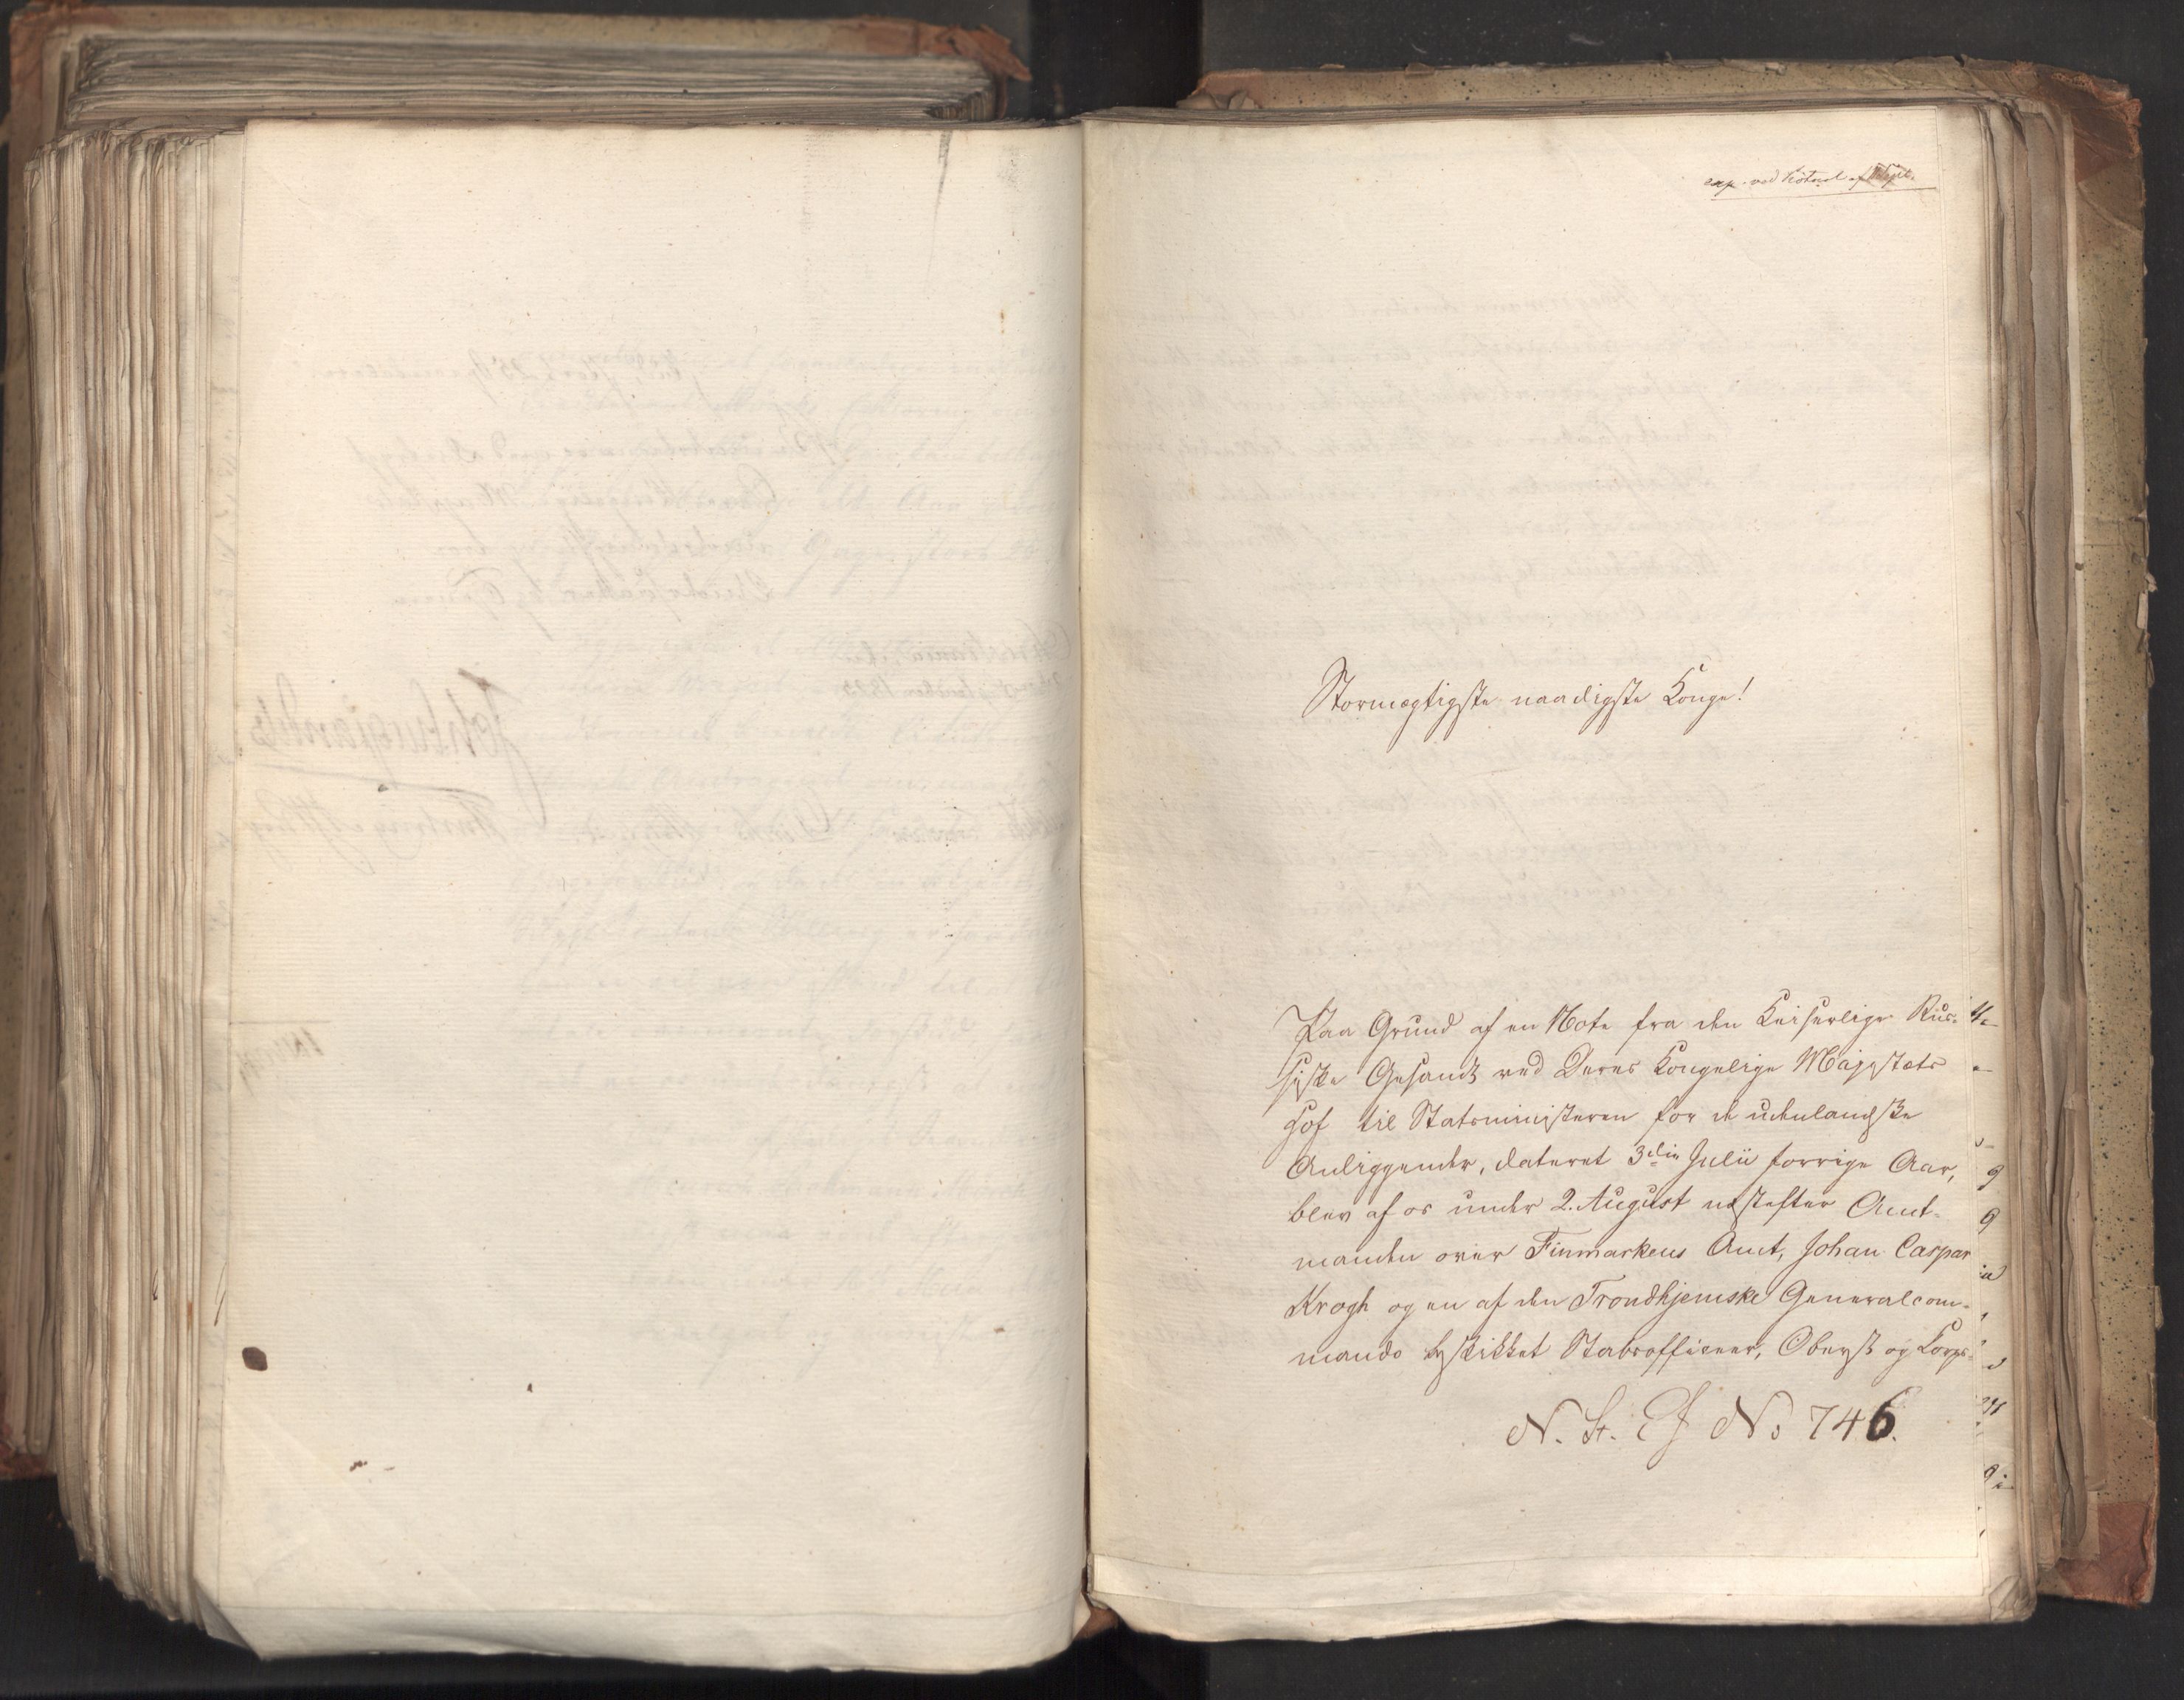 exp. ved
Stormægtigste naadigste Konge!
Paa Grund af en Note fra den Keiserlige Rus-
siske Gesandt ved Deres Kongelige Majestæts
Hof til Statsministeren for de udenlandske
Anliggender, dateret 3die Julii forrige Aar,
blev af os under 2. August næstefter Amt-
manden over Finmarkens Amt, Johan Caspar
Krogh og en af den Trondhjemske Generalcom-
mando beskikket Stabsofficeer, Oberst og Corps-
N. St. No 746.